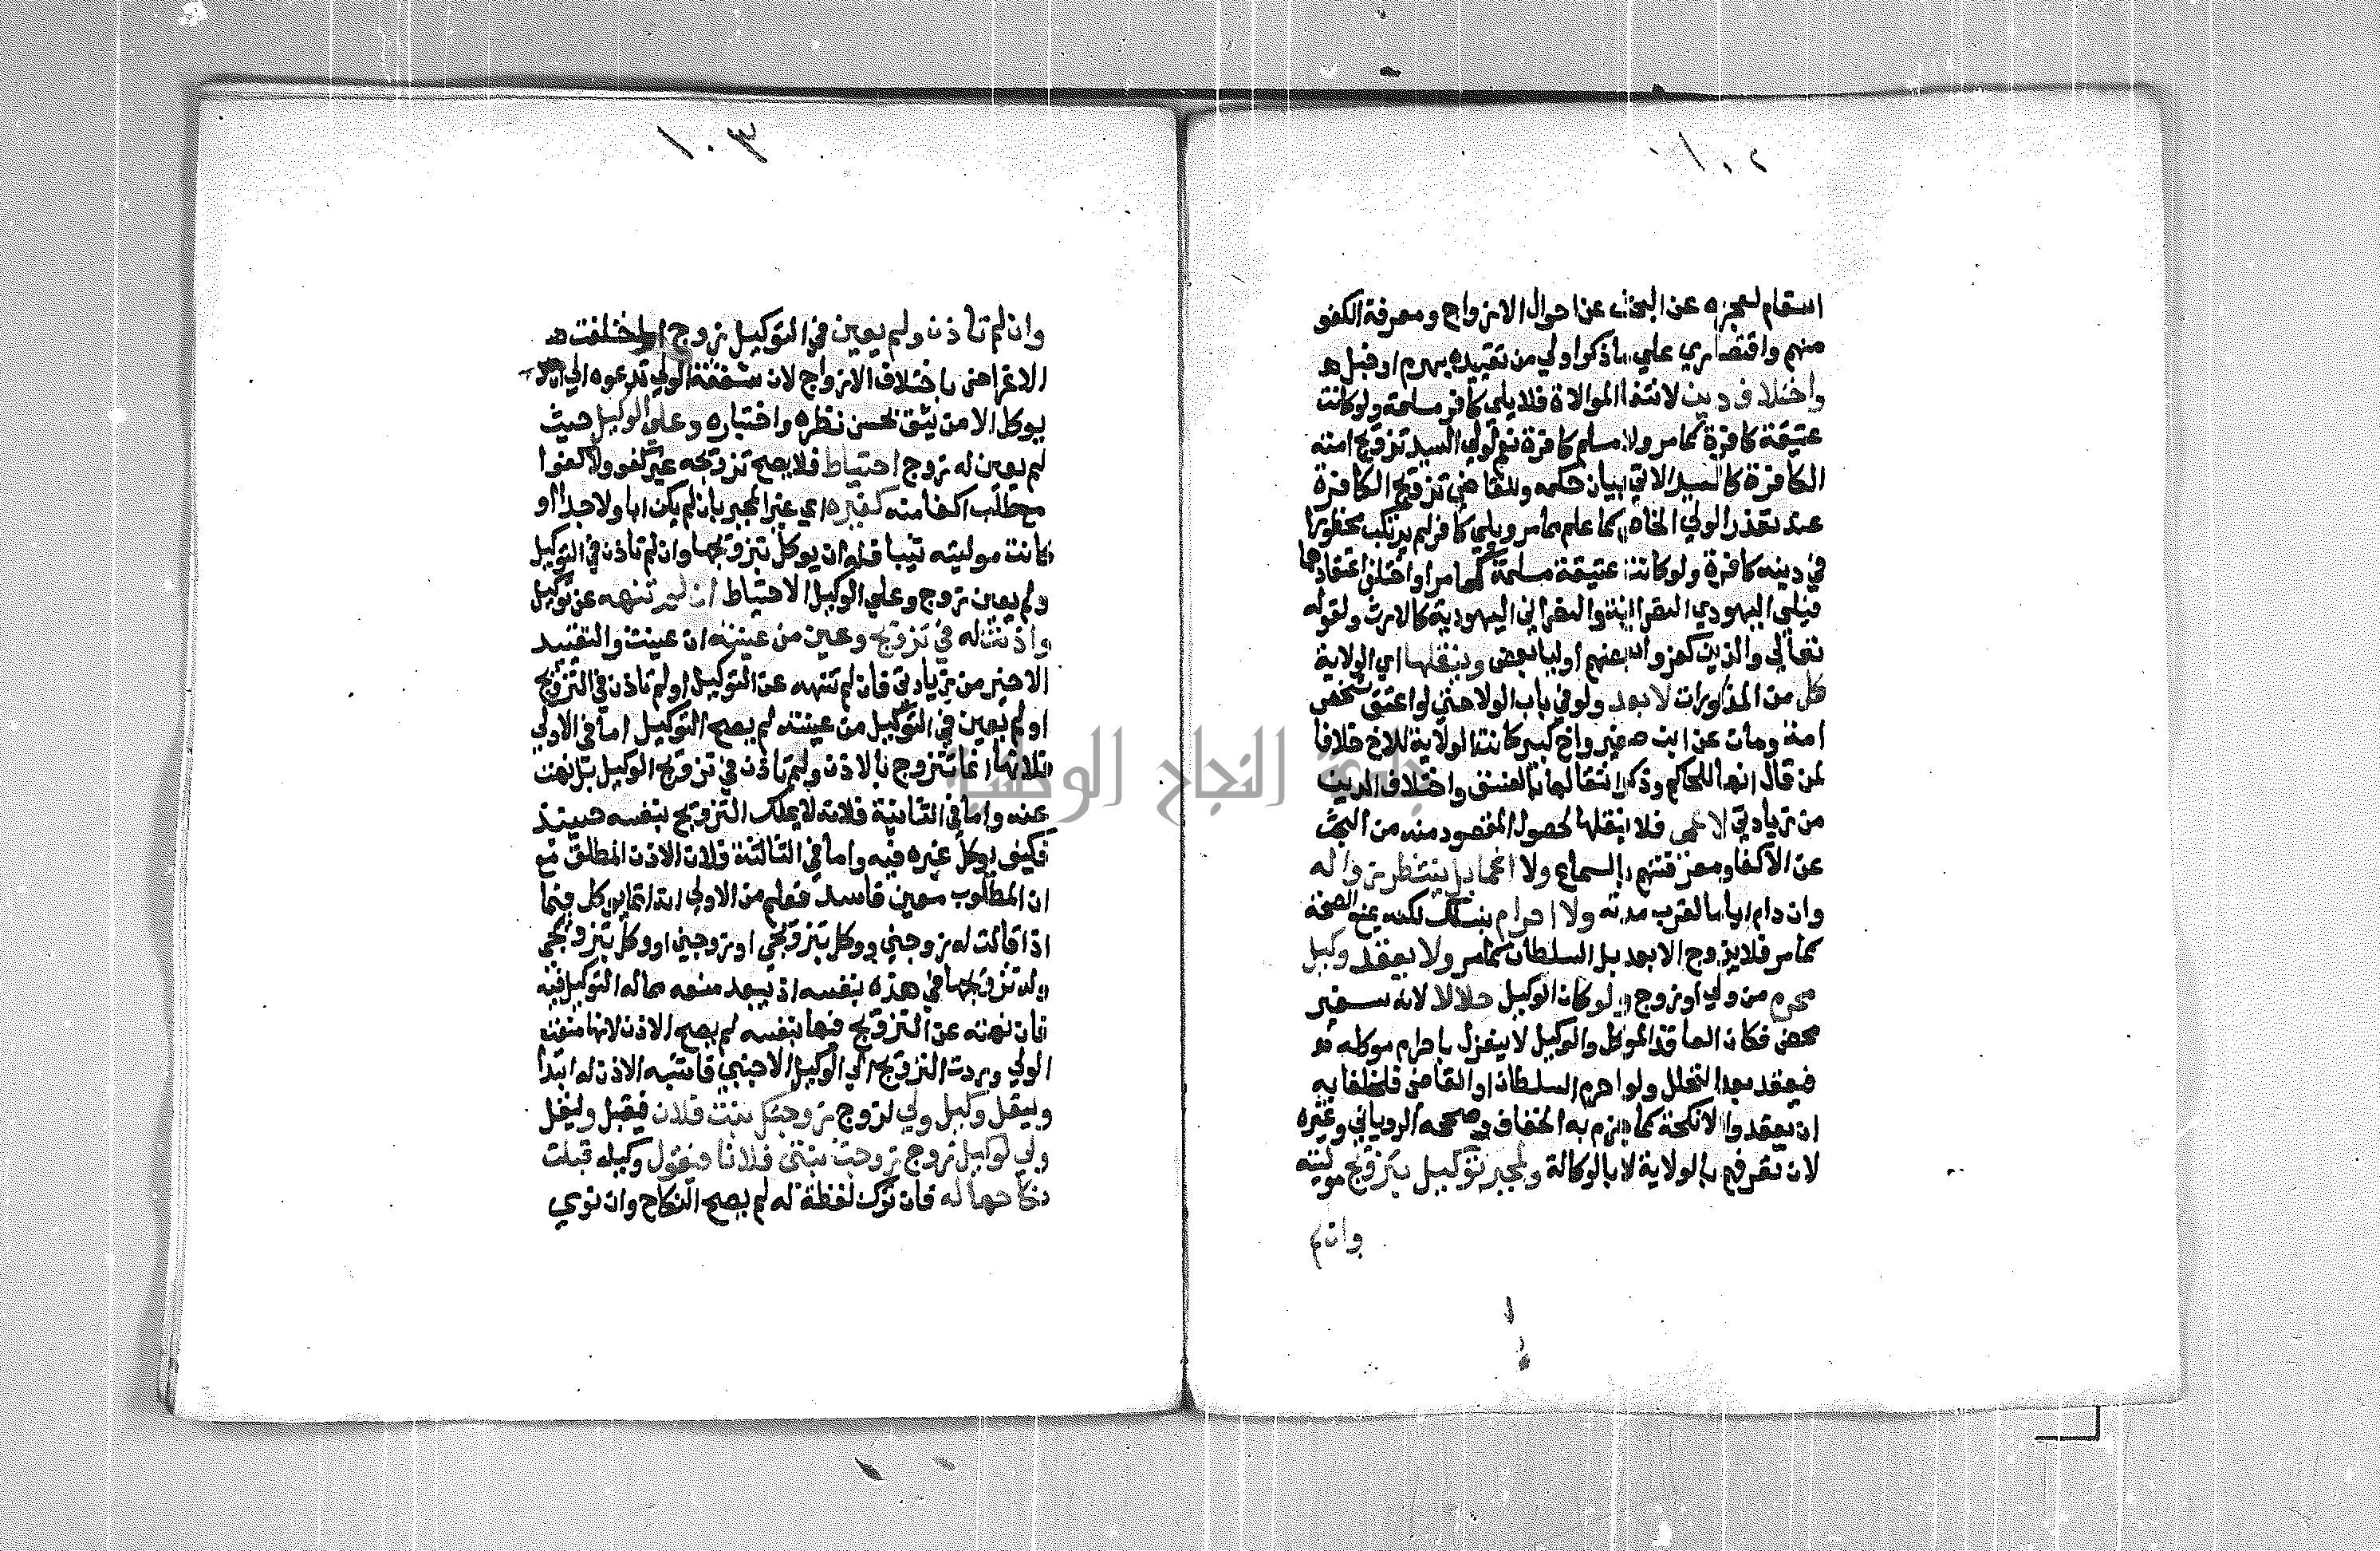 ١٠٢
اسقام لعجزه عن البحث عن احوال الازواج ومعرفة الكفو
منهم واقتصاري علي ماذكر اولي من تقييده بهرم او خبل هـ
واختلاف دين لانتفا الموالاة فلا يلي كافر مسلمة ولو كانت
عتيقة كافرة كما مر ولا مسلم كافرة نعم لولي السيد تزويج امته
الكافرة كالسيد الاتي بيان حكمه وللقاضي تزويج الكافرة
عند تعذر الولي الخاص كما علم مما مر ويلي كافر لم يرتكب محظورا
في دينه كافرة ولو كانت عتيقة مسلمة كما مر او اختلف اعتقادهما
فيلي اليهودي النصرانية والنصراني اليهودية كالارث ولقوله
تعالي والذين كفروا بعضهم اوليا بعض وينقلها اي الولاية
كل من المذكورات لابعد ولو في باب الولا حتي لو اعتق شخص
امة ومات عن ابن صغير واخ كبير كانت الولاية للاخ خلافا
لمن قال انها للحاكم وذكر انتقالها بالفسق واختلاف الدين
من زيادتي لا عمي فلا ينقلها لحصول المقصود منه من البحث
عن الاكفا ومعرفتهم بالسماع ولا اغما بل ينتظر زواله
وان دام اياما لقرب مدته ولا احرام بنسك لكنه يمنع الصحة
كما مر فلا يزوج الابعد بل السلطان كما مر ولا يعقد وكيل
محرم من ولي او زوج ولو كان الوكيل حلالا لانه سفير
محض فكان العاقد الموكل والوكيل لا ينعزل باحرام موكله
فيعقد بعد التحلل ولو احرم السلطان او القاضي فلخلفايه
ان يعقدوا الانكحة كما جزم به الخفاف وصححه الروياني وغيره
لان تصرفهم بالولاية لا بالوكالة ولمجبر توكيل بتزويج موليته
وان لم
١٠٣
وان لم تاذن ولم يعين في التوكيل زوج او اختلفت هـ
الاغراض باختلاف الازواج لان شفقة الولي تدعوه الي ان لا
يوكل الا من يثق بحسن نظره واختياره وعلي الوكيل حيث
لم يعين له زوج احتياط فلا يصح تزويجه غير كفو ولا كفوا
مع طلب اكفا منه كغيره اي غير المجبر بان لم يكن ابا ولا جدا او
كانت موليته ثيبا فله ان يوكل بتزويجها وان لم تاذن في التوكيل
ولم يعين زوج وعلي الوكيل الاحتياط ان لم تنهه عن توكيل
واذنت له في تزويج وعين من عينته ان عينت والتقييد
الاخير من زيادتي فان لم تنهه عن التوكيل او لم تاذن في التزويج
او لم يعين في التوكيل من عينته لم يصح التوكيل اما في الاولي
فلانها انما تتزوج بالاذن ولم تاذن في تزويج الوكيل بل نهت
عنه واما في الثانية فلانه لا يملك التزويج بنفسه حينئذ
فكيف يوكل غيره فيه واما في الثالثة فلان الاذن المطلق مع
ان المطلوب معين فاسد فعلم من الاولي انه انما يوكل فيما
اذا قالت له زوجني ووكل بتزويجي او زوجني او وكل بتزويجي
وله تزويجها في هذه بنفسه اذ يبعد منعه مما له التوكيل فيه
فان نهته عن التزويج فيها بنفسه لم يصح الاذن لانها منعت
الولي وردت التزويج الي الوكيل الاجنبي فاشبه الاذن له ابتدا
وليقل وكيل ولي لزوج زوجتك بنت فلان فيقبل وليقل
ولي لوكيل زوج زوجت بنتي فلانا فيقول وكيله قبلت
نكاحها له فان ترك لفظة له لم يصح النكاح وان نوي
جامعة النجاح الوطنية